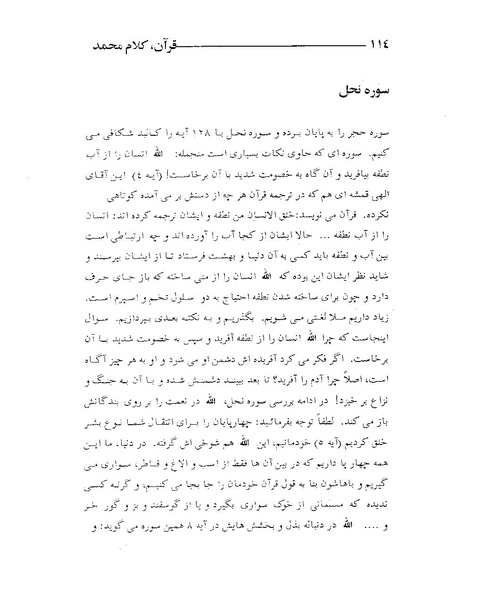 ١١٤ قرآن، کلام محمد
سوره نحل
سوره حجر را به پایان برده و سوره نحل با ۱۲۸ آیه را کالبد شکافی می
کنیم. سوره ای که حاوی نکات بسیاری است منجمله: الله انسان را از آب
نطفه بیافرید و آن گاه به خصومت شدید با آن برخاست! (آیه ٤) این آقای
الهی قمشه ای هم که در ترجمه قرآن هر چه از دستش بر می آمده کوتاهی
نکرده. قرآن می نویسد: خلق الانسان من نطفه و ایشان ترجمه کرده اند: انسان
را از آب نطفه ... حالا ایشان از کجا آب را آورده اند و چه ارتباطی است
بین آب و نطفه باید کسی به آن دنیا و بهشت فرستاد تا از ایشان بپرسند و
شاید نظر ایشان این بوده که الله انسان را از منی ساخته که باز جای حرف
دارد و چون برای ساخته شدن نطفه احتیاج به دو سلول تخم و اسپرم است.
زیاد داریم ملا لغتی می شویم. بگذریم و به نکته بعدی بپردازیم. سوال
اینجاست که چرا الله انسان را از نطفه آفرید و سپس به خصومت شدید با آن
برخاست. اگر فکر می کرد آفریده اش دشمن او می شود و او به هر چیز آگاه
است، اصلاً چرا آدم را آفرید؟ تا بعد ببیند دشمنش شده و با آن به جنگ و
نزاع بر خیزد! در ادامه بررسی سوره نحل، الله در نعمت را بر روی بندگانش
باز می کند. لطفاً توجه بفرمائید: چهارپایان را برای انتقال شما نوع بشر
خلق کردیم (آیه ٥) خودمانیم، این الله هم شوخی اش گرفته. در دنیا، ما این
همه چهار پا داریم که در بین آن ها فقط از اسب و الاغ و قاطر، سواری می
گیریم و باهاشون بنا به قول قرآن خودمان را جا بجا می کنیم، و گرنه کسی
ندیده که مسلمانی از خوک سواری بگیرد و یا از گوسفند و بز و گور خر
و .... الله در دنباله بذل و بخشش هایش در آیه ٨ همین سوره می گوید: و